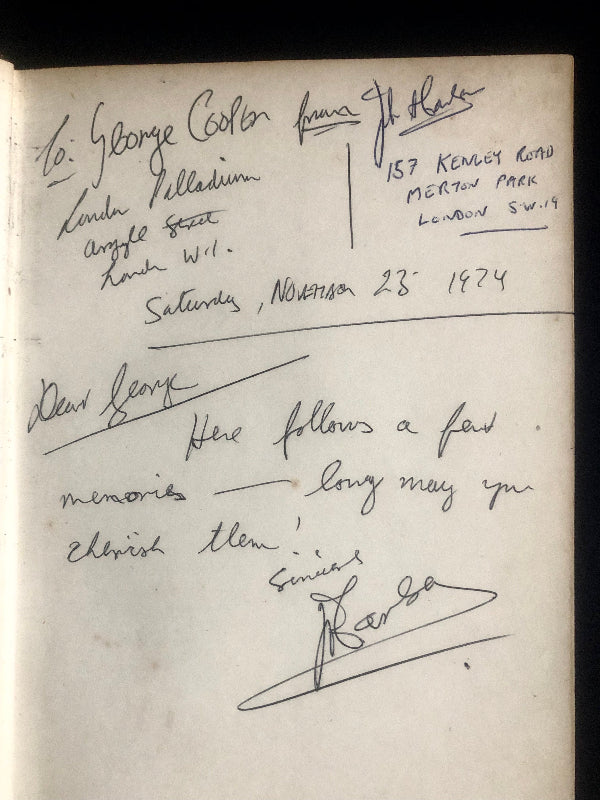 To: George Cooper from
London Palladium
Argyle Street
London W.1.
157 KENLEY ROAD
MERTON PARK
LONDON S.W.19
Saturday, NOVEMBER 23 1974
Dear George
Here follows a few
memories — long may you
cherish them!
Sincerely